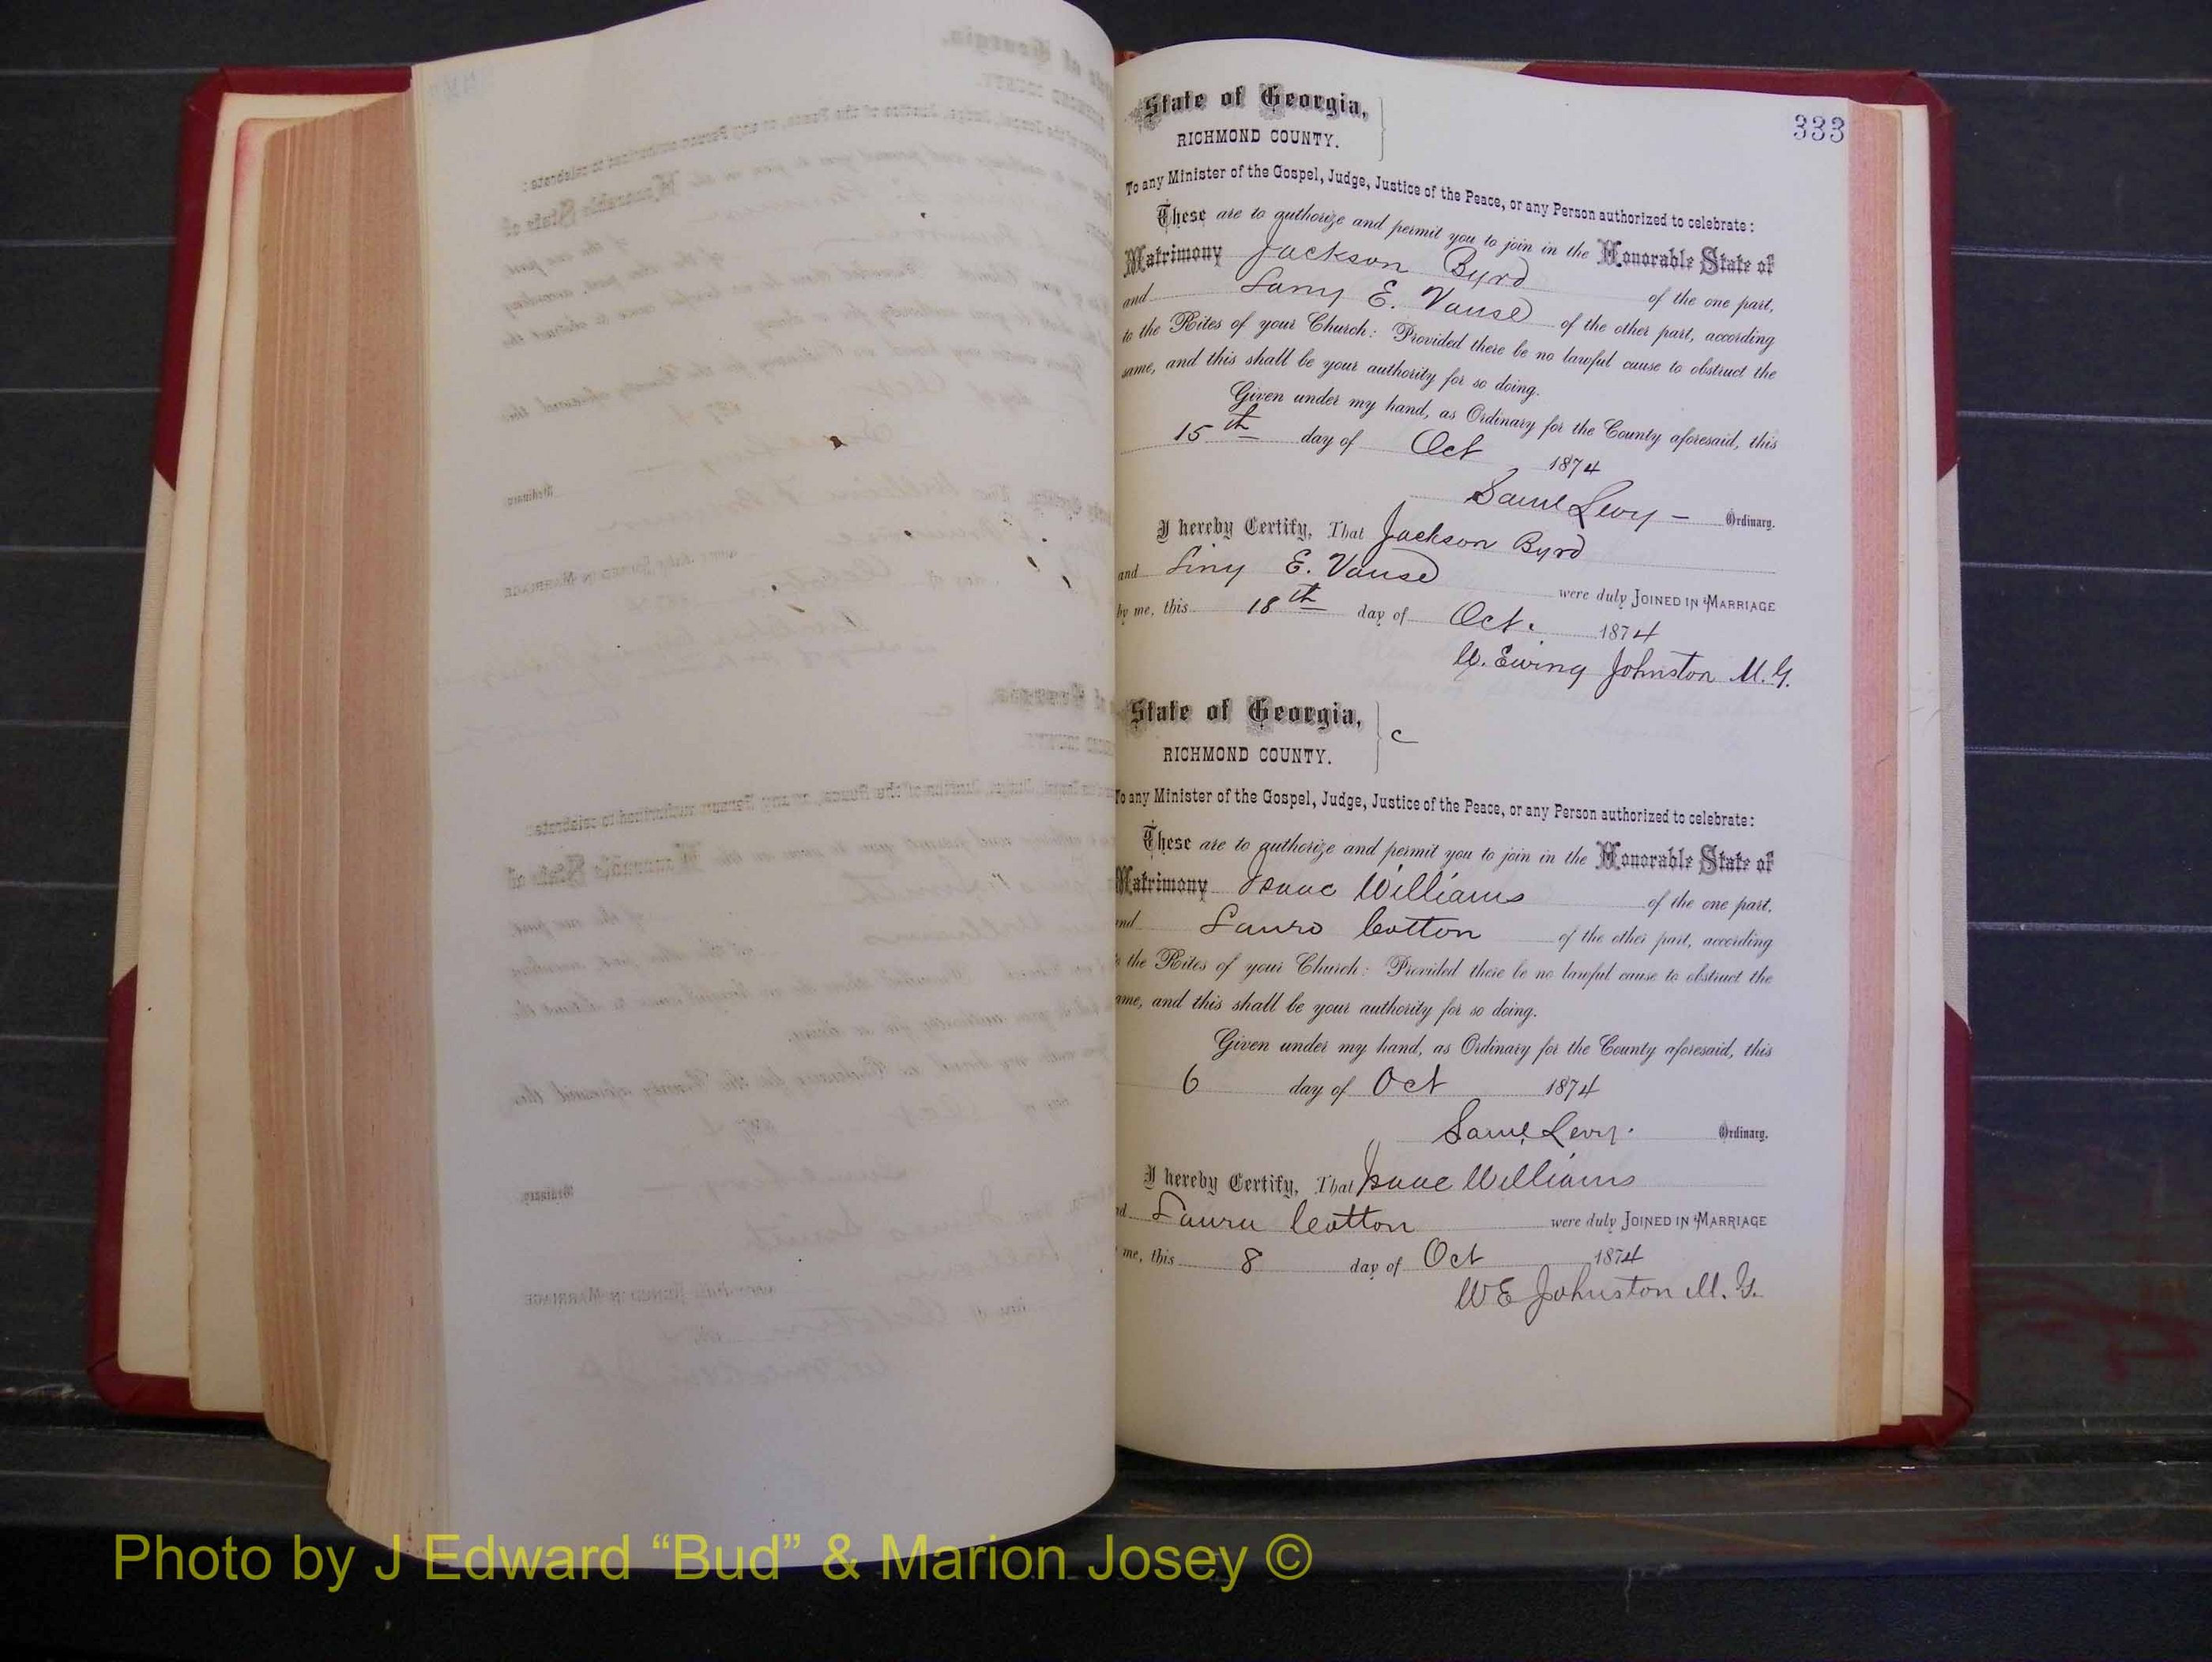 333
State of Georgia,
RICHMOND COUNTY.
To any Minister of the Gospel, Judge, Justice of the Peace, or any Person authorized to celebrate:
These are to authorize and permit you to join in the Honorable State of
Matrimony Jackson Byrd of the one part,
and E. Vause of the other part, according
to the Rites of your Church: Provided there be no lawful cause to obstruct the
same, and this shall be your authority for so doing.
Given under my hand, as Ordinary for the County aforesaid, this
15th day of Oct 1874
Saml Levy - Ordinary.
I hereby Certify, That Jackson Byrd
and Liny E. Vause were duly JOINED IN MARRIAGE
by me, this 18th day of Oct. 1874
W. Ewing Johnston M.G.
State of Georgia, c
RICHMOND COUNTY.
To any Minister of the Gospel, Judge, Justice of the Peace, or any Person authorized to celebrate:
These are to authorize and permit you to join in the Honorable State of
Matrimony Isaac Williams of the one part,
and Laura Cotton of the other part, according
the Rites of your Church: Provided there be no lawful cause to obstruct the
ame, and this shall be your authority for so doing.
Given under my hand, as Ordinary for the County aforesaid, this
6 day of Oct 1874
Saml Levy. Ordinary.
I hereby Certify, That Isaac Williams
d Laura Cotton were duly JOINED IN MARRIAGE
me, this 8 day of Oct 1874
WE Johnston M.G.
Photo by J Edward “Bud” & Marion Josey ©